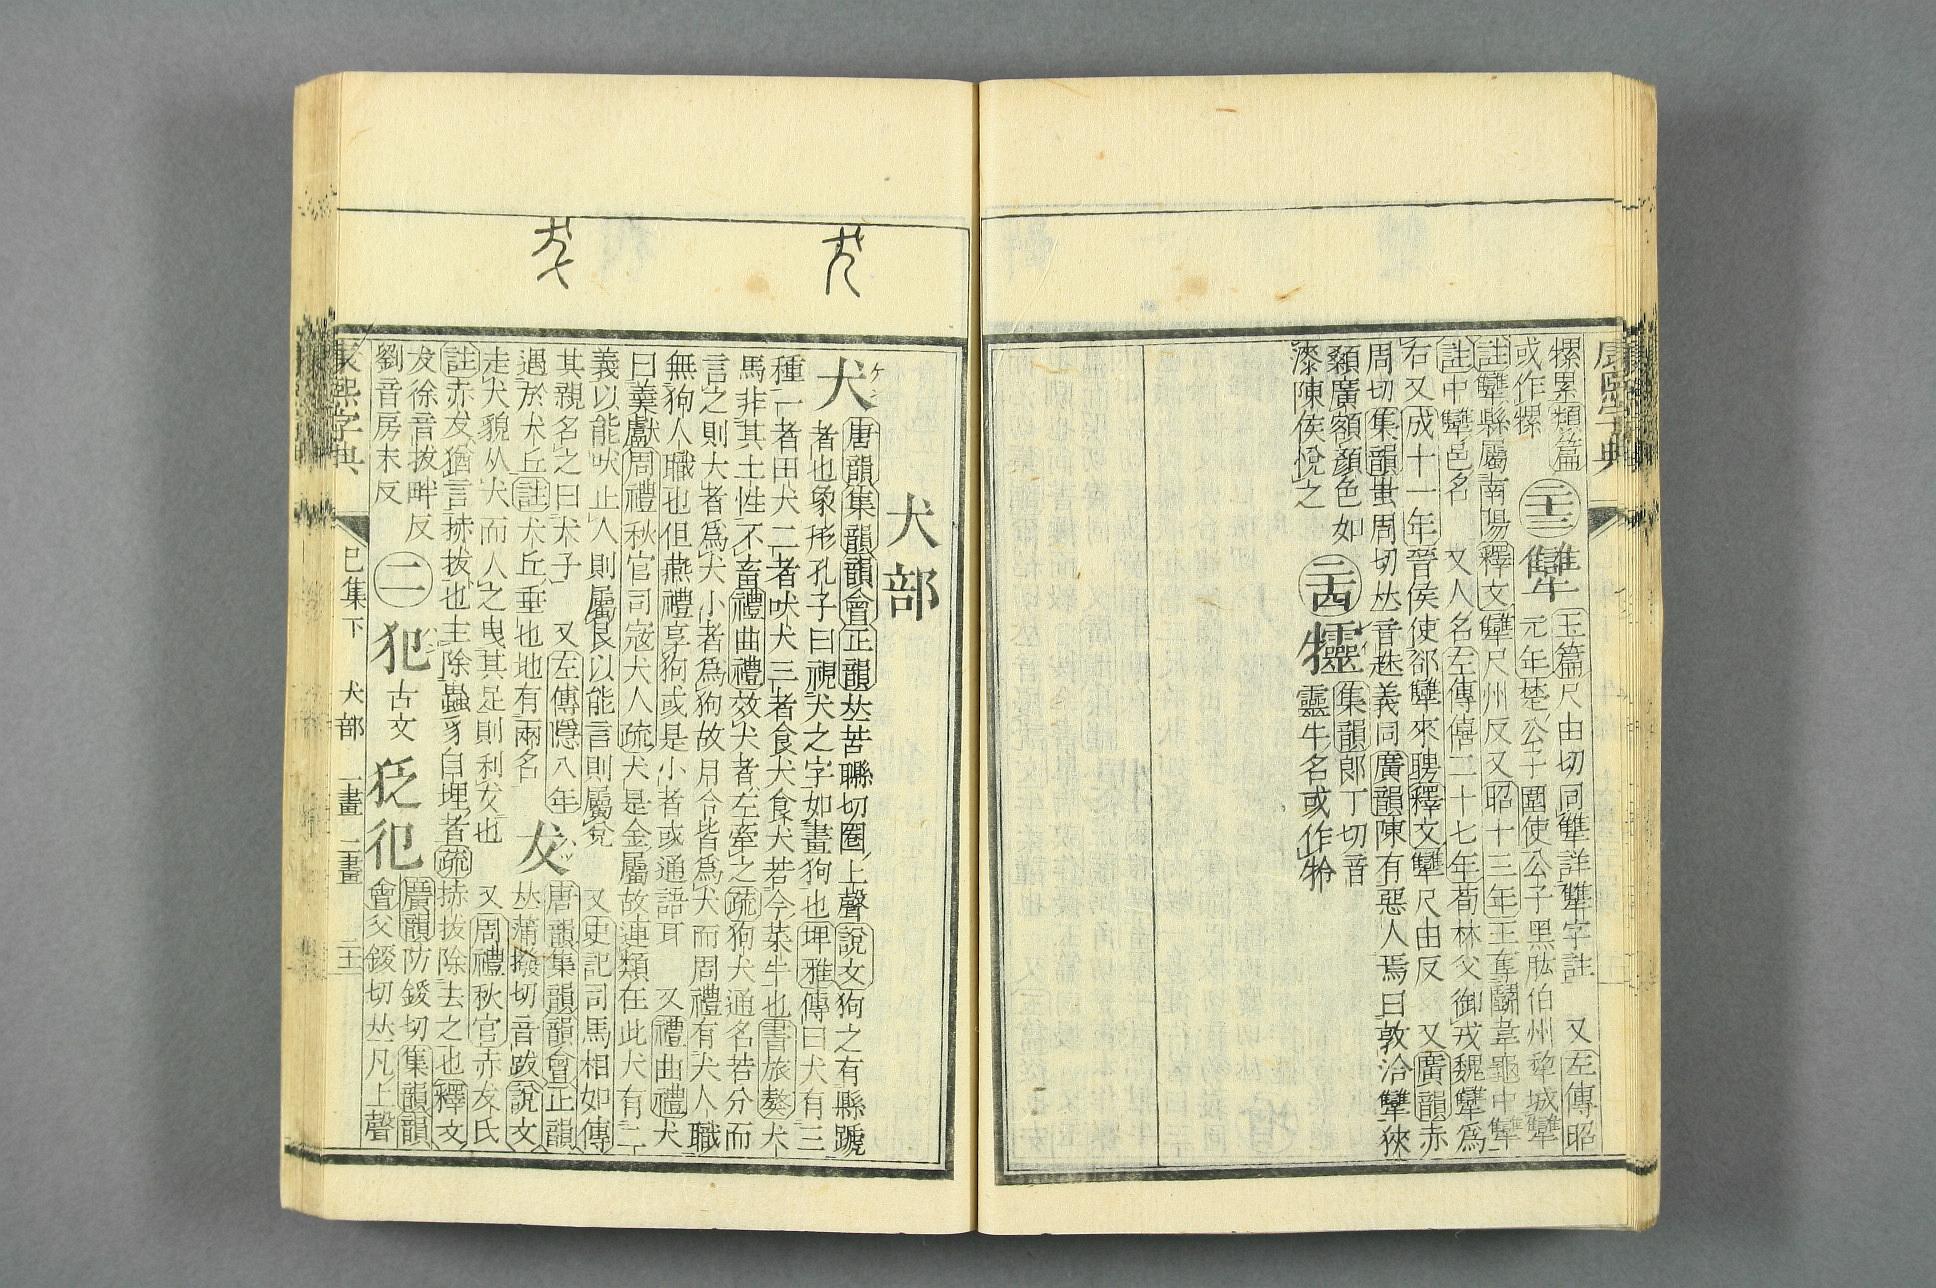 康熙字典
累類篇
或作
二十三
犨
玉篇尺由切同犨詳犨字註 又左傳昭
元年楚公子圍使公子黑肱伯州犂城犨
註犨縣屬南陽釋文犨尺州反又昭十三年王奪鬭韋龜中犨
註中犨邑名 又人名左傳僖二十七年荀林父御戎魏犨爲
右又成十一年晉侯使郤犨來聘釋文犨尺由反 又廣韻赤
周切集韻蚩周切𠀤音 義同廣韻陳有惡人焉曰敦洽犨狹
顙廣額顏色如
漆陳侯悅之
二十四
集韻郎丁切音
靈牛名或作㸳
犬部
犬
唐韻集韻韻會正韻𠀤苦 切圈上聲說文狗之有縣蹏
者也象形孔子曰視犬之字如畫狗也埤雅傳曰犬有三
種一者田犬二者吠犬三者食犬食犬若今菜牛也書旅獒犬
馬非其土性不畜禮曲禮效犬者左牽之疏狗犬通名若分而
言之則大者爲犬小者爲狗故月令皆爲犬而周禮有犬人職
無狗人職也但燕禮亨狗或是小者或通語耳 又禮曲禮犬
曰羹獻周禮秋官司寇犬人疏犬是金屬故連類在此犬有二
義以能吠止人則屬艮以能言則屬兌 又史記司馬相如傳
其親名之曰犬子 又左傳隱八年
遇於犬丘註犬丘垂也地有兩名
犮
唐韻集韻韻會正韻
𠀤蒲撥切音跋說文
走犬貌从犬而人之曳其足則利犮也 又周禮秋官赤犮氏
註赤犮猶言捇拔也主除蟲豸自埋者疏捇拔除去之也釋文
犮徐音拔畔反
劉音房末反
二
犯
古文
廣韻防錽切集韻韻
會父錽切𠀤凡上聲
康熙字典
巳集下 犬部 一畫 二畫